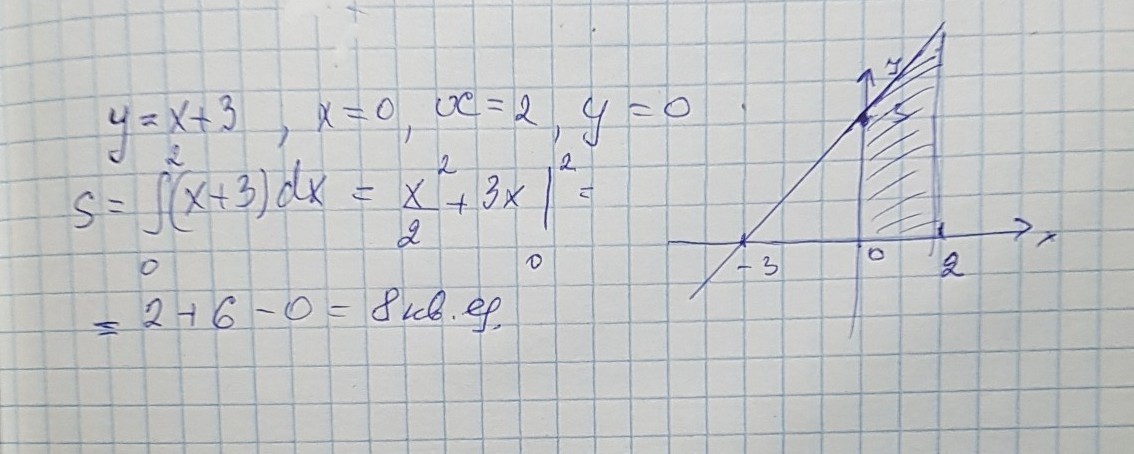 y = x+3 , x=0, x=2, y=0
S = ∫₀² (x+3)dx = x²/2 + 3x |₀² =
= 2+6-0 = 8 кв. ед.
y
S
-3 0 2 x